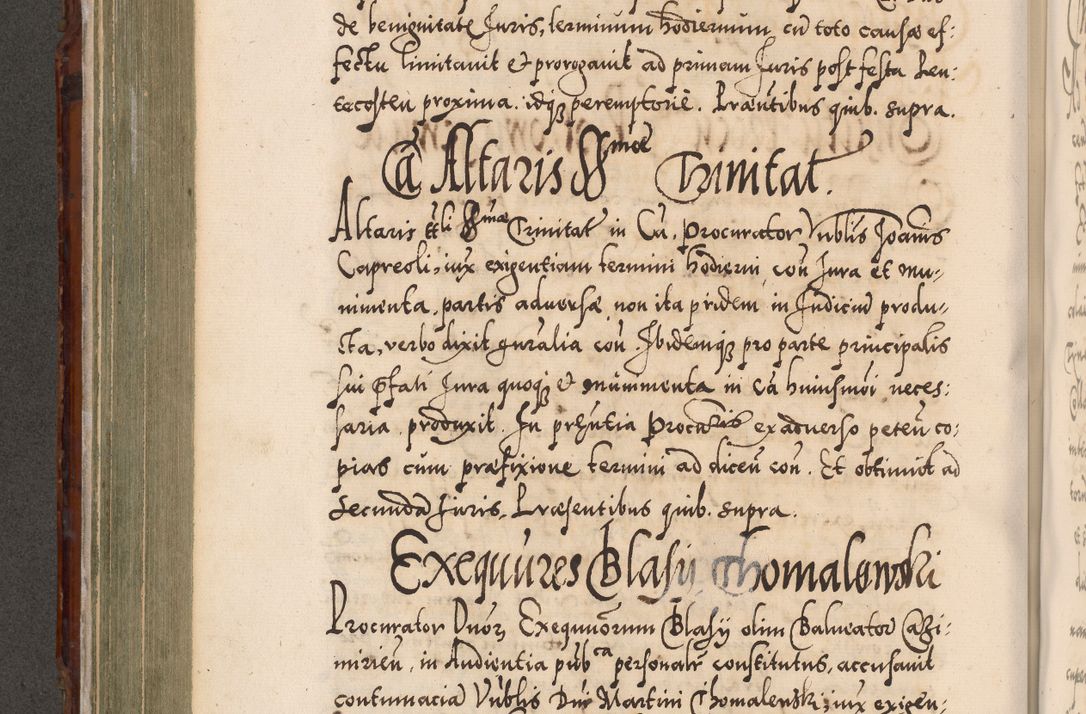 de benignitate Juris, terminum hodiernum cū toto causæ ef-
fectu limitavit & prorogavit ad primam Juris post festa Pen-
tecosten proxima. idq₃ peremptorie. Præntibus quib. supra.
Cā Altaris SSmæ Trinitat.
Altaris tituli SSmæ Trinitat in Ca. Procurator Nublis Joannis
Capreoli, iux exigentiam termini hodierni con Jura et mu-
nimenta partis adversæ non ita pridem in Judiciū produ-
cta, verbo dixit gnralia con Ibidemq₃ pro parte principalis
sui Pfati Jura quoq₃ & munimenta in ca huiusmoi neces-
saria produxit. In prēsntia Procuris ex adverso peteñ co-
pias cum præfixione termini ad diceñ con. Et obtinuit ad
secundā Juris. Præsentibus quib. supra.
Exequūres Blasij Thomalewski
Procurator Dnōr₃ Exequuōrum Blasij olim Balneatoris Cazi-
mirieñ, in Audientia pubca personalr constitutus, accusavit
contumaciā Nublis Dni Martini Thomalenski; iux exigen-